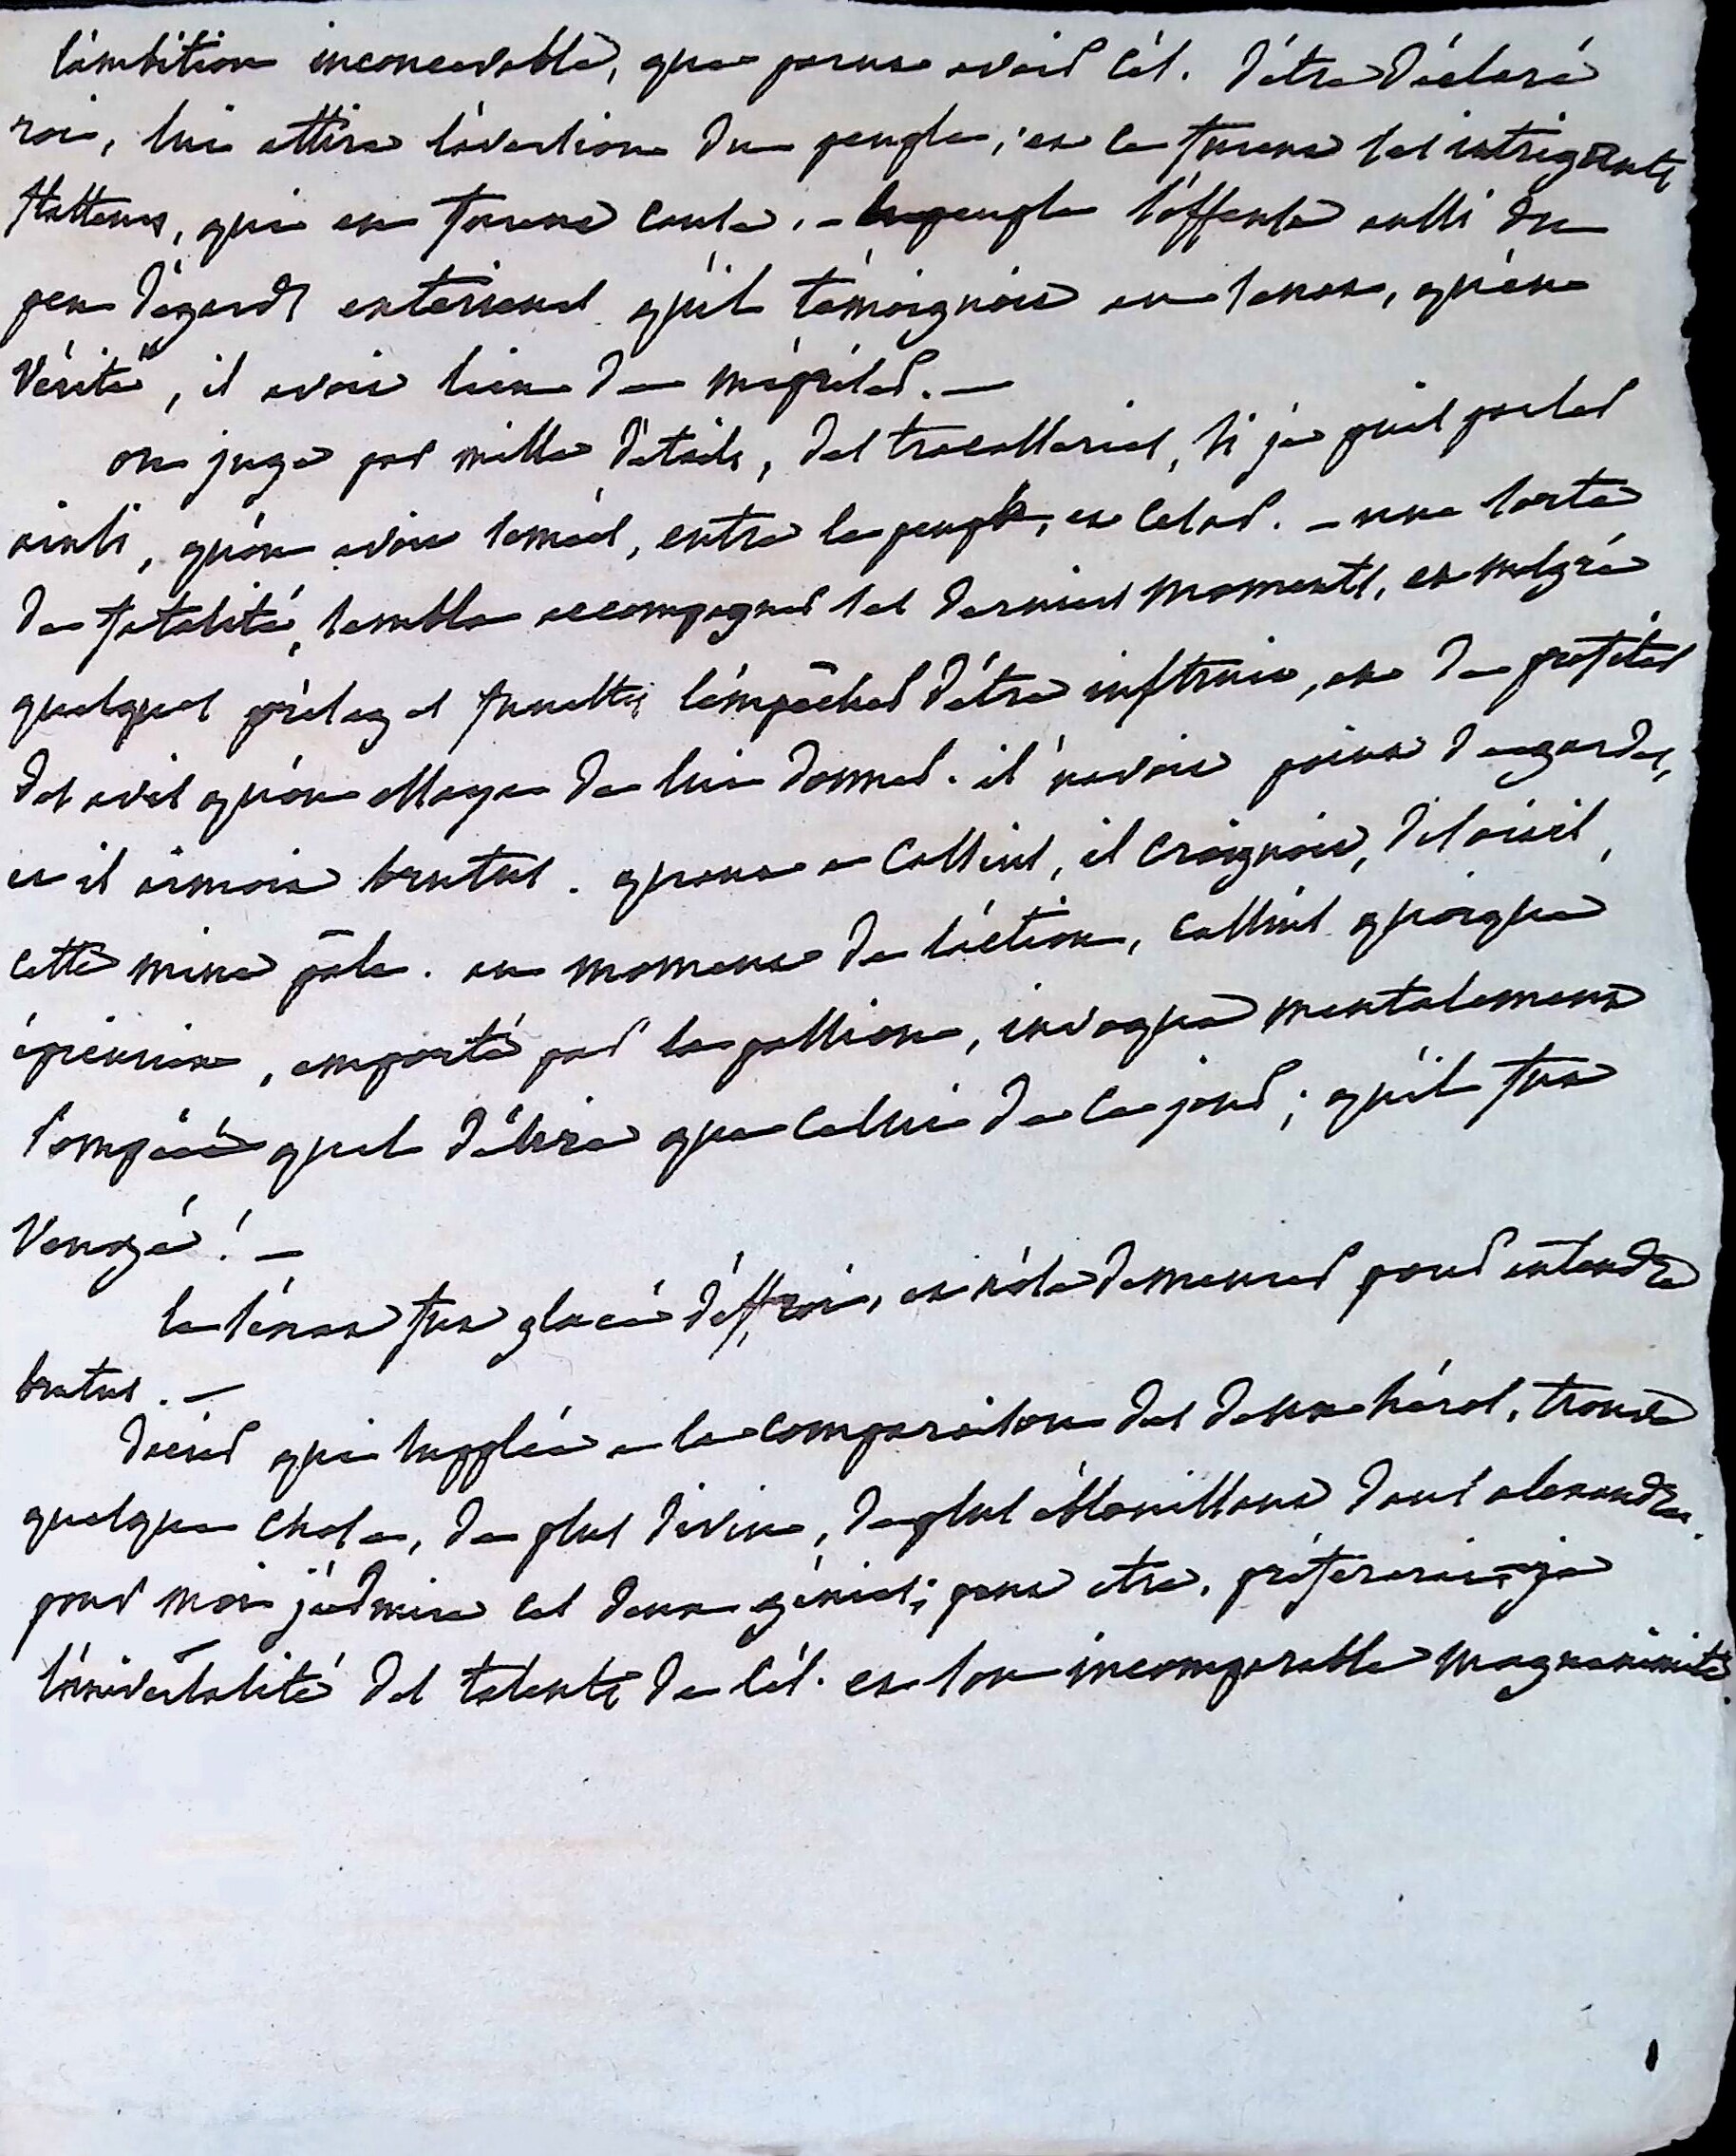 l'ambition inconcevable, que parut avoir Cés. d'être déclaré
roi, lui attira l'aversion du peuple; et ce furent ses intrigants
flatteurs, qui en furent cause. - le peuple s'offensa aussi du
peu d'égards extérieurs qu'il témoignoit au sénat, qu'en
vérité, il avoit lieu de mépriser. -
on juge par mille détails, des tracasseries, si je puis parler
ainsi, qu'on avoit semées, entre le peuple, et César. - une sorte
de fatalité, sembla accompagner ses derniers moments, et malgré
quelques présages funestes l'empêcher d'être instruit, et de profiter
des avis qu'on essaya de lui donner. il n'avoit point de gardes,
et il aimoit brutus. quant a Cassius, il craignoit, disoit il,
cette mine pâle. au moment de l'action, cassius quoique
épicurien, emporté par la passion, invoqua mentalement
Pompée quel délire que celui de ce jour; qu'il fut
vengé! -
le sénat fut glacé d'effroi, et n'osa demeurer pour entendre
brutus. -
dacier qui supplée a la comparaison des deux héros, trouve
quelque chose, de plus divin, de plus éblouissant dans alexandre.
pour moi j'admire ces deux génies; peut etre, préférerois-je
l'universalité des talents de Cés. et son incomparable magnanimité.